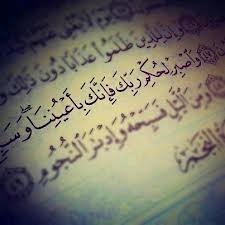 وَإِنَّ لِلَّذِينَ ظَلَمُوا۟ عَذَابًا دُونَ ذَٰلِكَ
وَٱصْبِرْ لِحُكْمِ رَبِّكَ فَإِنَّكَ بِأَعْيُنِنَا وَسَبِّ
وَمِنَ ٱلَّيْلِ فَسَبِّحْهُ وَإِدْبَٰرَ ٱلنُّجُومِ ٤٩